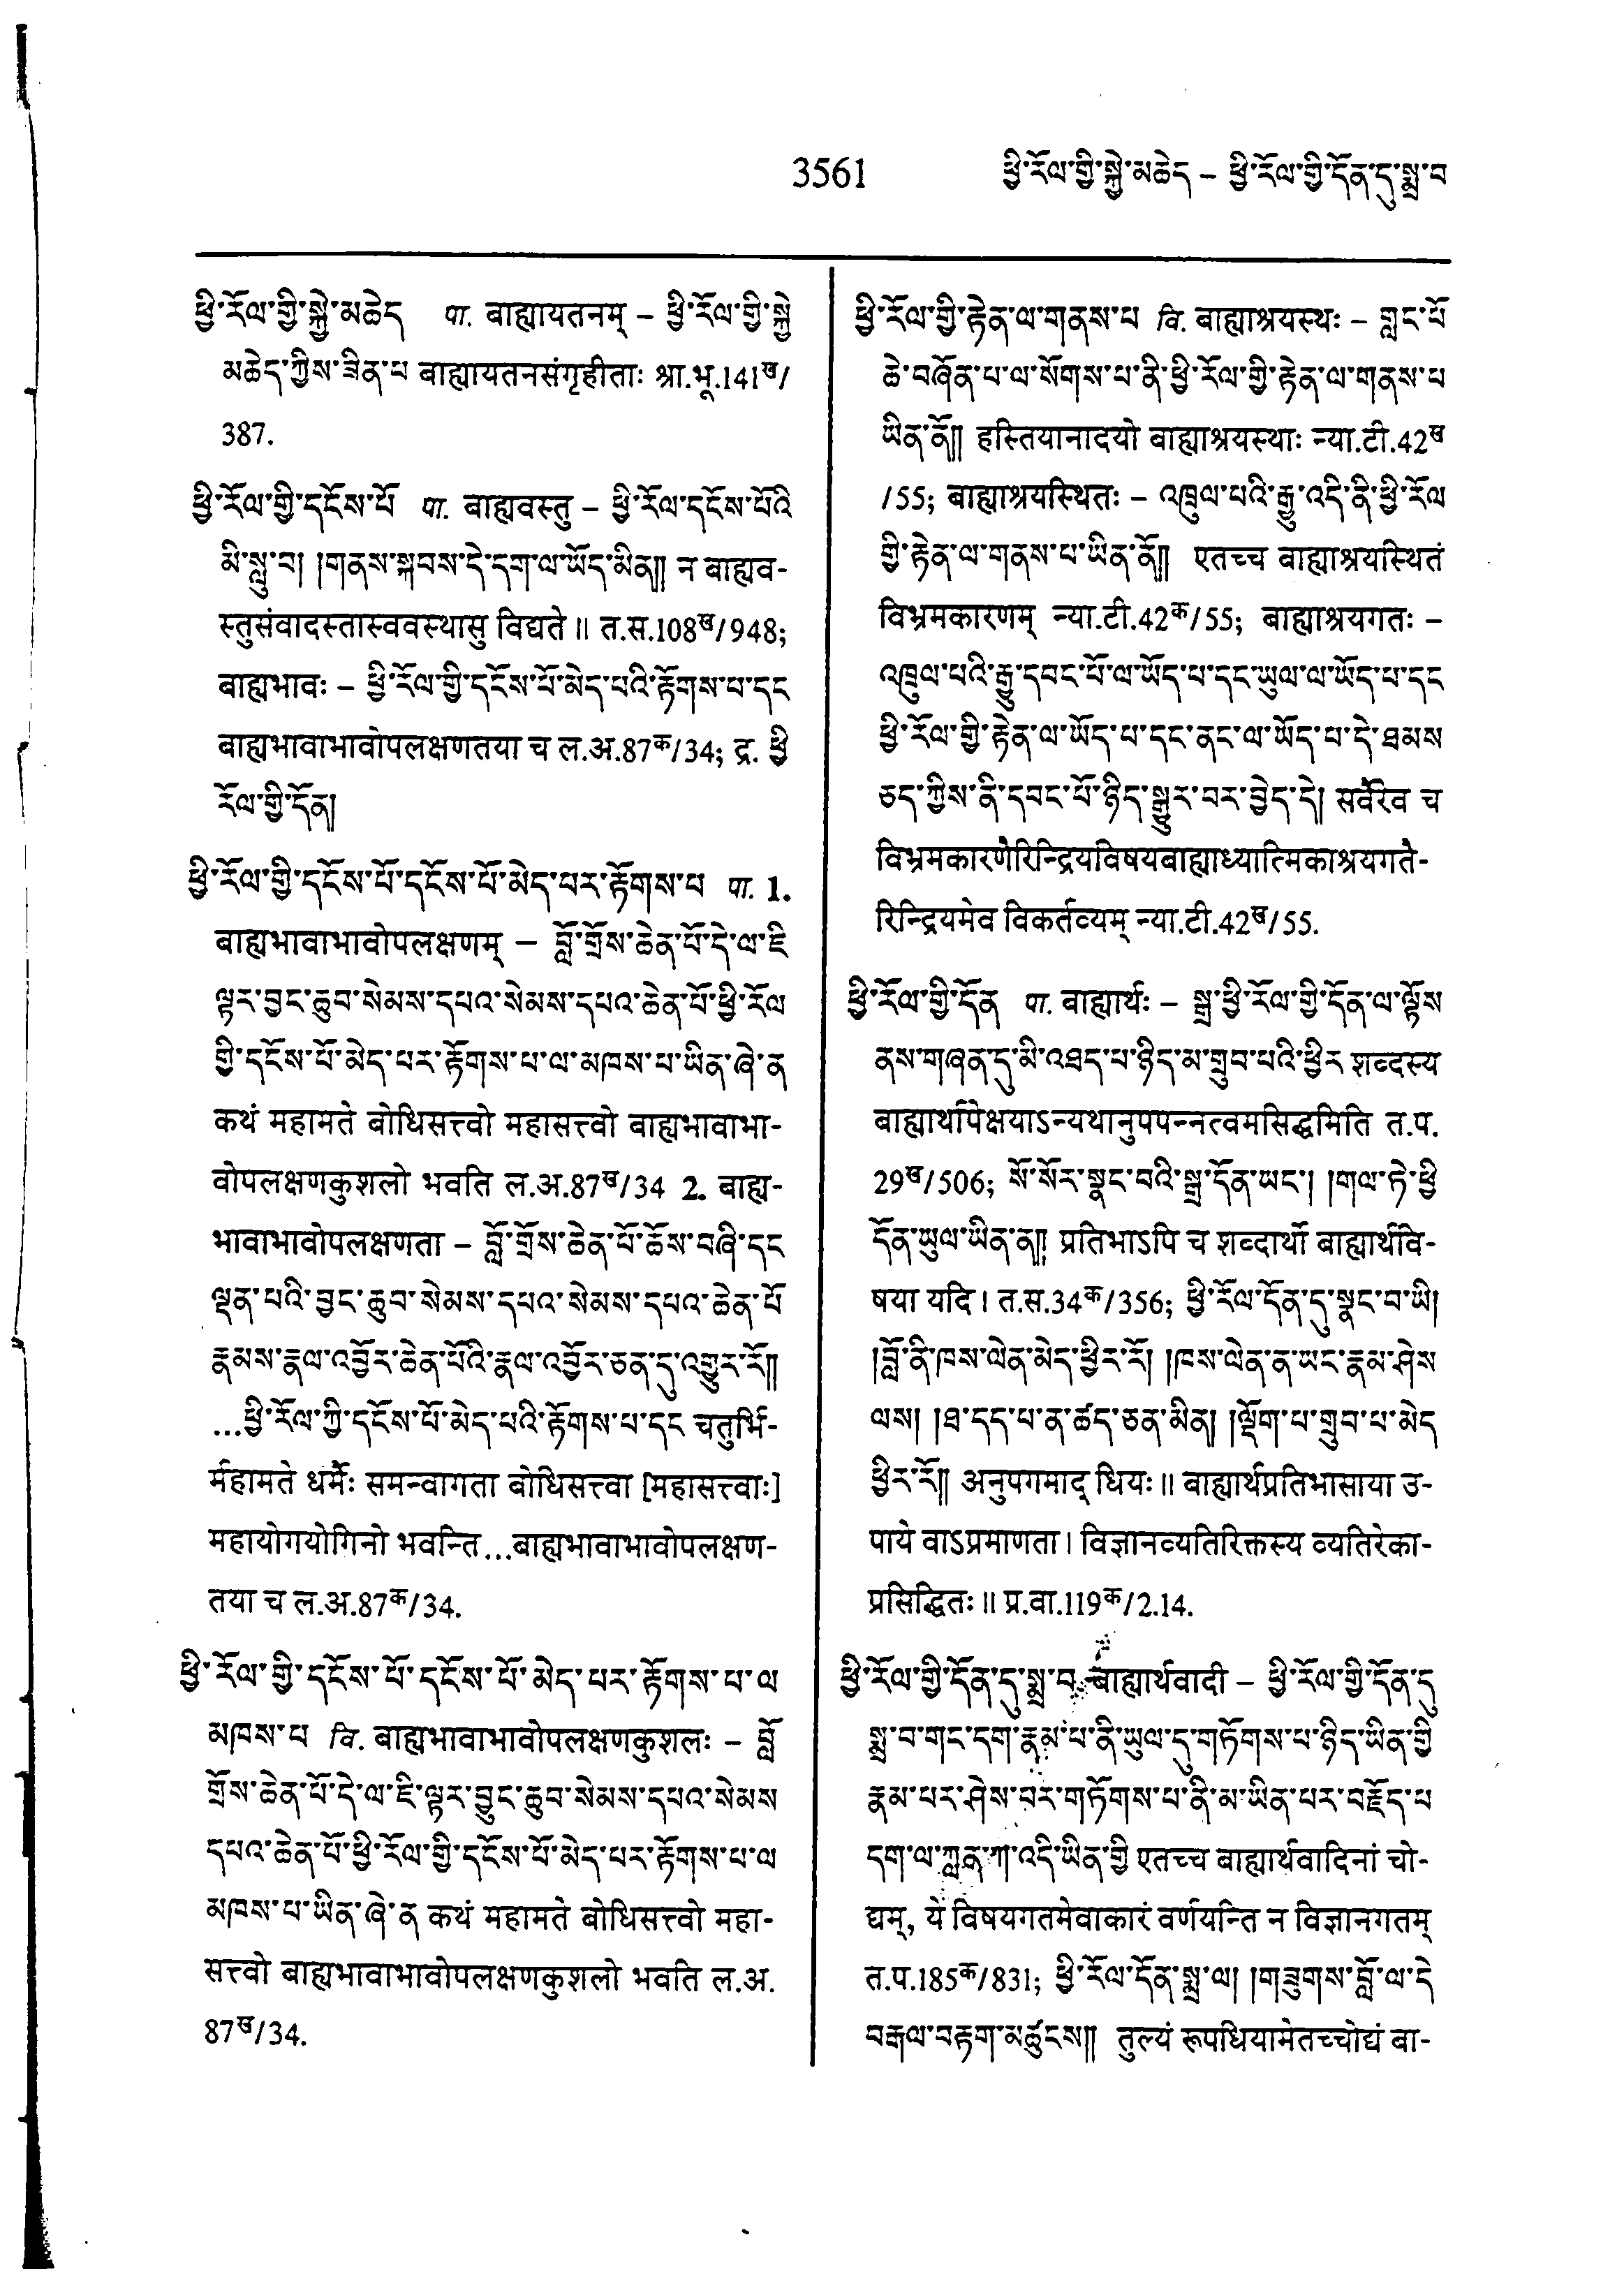 3561
ཕྱི་རོལ་གྱི་སྐྱེ་མཆེད – ཕྱི་རོལ་གྱི་དོན་དུ་སྨྲ་བ
ཕྱི་རོལ་གྱི་སྐྱེ་མཆེད पा. बाह्यायतनम् – ཕྱི་རོལ་གྱི་སྐྱེ
མཆེད་ཀྱིས་ཟིན་པ बाह्यायतनसंगृहीताः श्रा.भू.141ख/
387.
ཕྱི་རོལ་གྱི་དངོས་པོ पा. बाह्यवस्तु – ཕྱི་རོལ་དངོས་པོའི
མི་སླུ་བ། །གནས་སྐབས་དེ་དག་ལ་ཡོད་མིན།། न बाह्यव-
स्तुसंवादस्तास्ववस्थासु विद्यते॥ त.स.108ख/948;
बाह्यभावः – ཕྱི་རོལ་གྱི་དངོས་པོ་མེད་པའི་རྟོགས་པ་དང
बाह्यभावाभावोपलक्षणतया च ल.अ.87क/34; द्र. ཕྱི
རོལ་གྱི་དོན།
ཕྱི་རོལ་གྱི་དངོས་པོ་དངོས་པོ་མེད་པར་རྟོགས་པ पा. 1.
बाह्यभावाभावोपलक्षणम् – བློ་གྲོས་ཆེན་པོ་དེ་ལ་ཇི
ལྟར་བྱང་ཆུབ་སེམས་དཔའ་སེམས་དཔའ་ཆེན་པོ་ཕྱི་རོལ
གྱི་དངོས་པོ་མེད་པར་རྟོགས་པ་ལ་མཁས་པ་ཡིན་ཞེ་ན
कथं महामते बोधिसत्त्वो महासत्त्वो बाह्यभावाभा-
वोपलक्षणकुशलो भवति ल.अ.87ख/34 2. बाह्य-
भावाभावोपलक्षणता – བློ་གྲོས་ཆེན་པོ་ཆོས་བཞི་དང
ལྡན་པའི་བྱང་ཆུབ་སེམས་དཔའ་སེམས་དཔའ་ཆེན་པོ
རྣམས་རྣལ་འབྱོར་ཆེན་པོའི་རྣལ་འབྱོར་ཅན་དུ་འགྱུར་རོ།།
...ཕྱི་རོལ་ཀྱི་དངོས་པོ་མེད་པའི་རྟོགས་པ་དང चतुर्भि-
र्महामते धर्मैः समन्वागता बोधिसत्त्वा [महासत्त्वाः]
महायोगयोगिनो भवन्ति...बाह्यभावाभावोपलक्षण-
तया च ल.अ.87क/34.
ཕྱི་རོལ་གྱི་དངོས་པོ་དངོས་པོ་མེད་པར་རྟོགས་པ་ལ
མཁས་པ वि. बाह्यभावाभावोपलक्षणकुशलः – བློ
གྲོས་ཆེན་པོ་དེ་ལ་ཇི་ལྟར་བྱུང་ཆུབ་སེམས་དཔའ་སེམས
དཔའ་ཆེན་པོ་ཕྱི་རོལ་གྱི་དངོས་པོ་མེད་པར་རྟོགས་པ་ལ
མཁས་པ་ཡིན་ཞེ་ན कथं महामते बोधिसत्त्वो महा-
सत्त्वो बाह्यभावाभावोपलक्षणकुशलो भवति ल.अ.
87ख/34.
ཕྱི་རོལ་གྱི་རྟེན་ལ་གནས་པ वि. बाह्याश्रयस्थः – གླང་པོ
ཆེ་བཞོན་པ་ལ་སོགས་པ་ནི་ཕྱི་རོལ་གྱི་རྟེན་ལ་གནས་པ
ཡིན་ནོ།། हस्तियानादयो बाह्याश्रयस्थाः न्या.टी.42ख
/55; बाह्याश्रयस्थितः – འཁྲུལ་པའི་རྒྱུ་འདི་ནི་ཕྱི་རོལ
གྱི་རྟེན་ལ་གནས་པ་ཡིན་ནོ།། एतच्च बाह्याश्रयस्थितं
विभ्रमकारणम् न्या.टी.42क/55; बाह्याश्रयगतः –
འཁྲུལ་པའི་རྒྱུ་དབང་པོ་ལ་ཡོད་པ་དང་ཡུལ་ལ་ཡོད་པ་དང
ཕྱི་རོལ་གྱི་རྟེན་ལ་ཡོད་པ་དང་ནང་ལ་ཡོད་པ་དེ་ཐམས
ཅད་ཀྱིས་ནི་དབང་པོ་ཉིད་སྒྱུར་བར་བྱེད་དེ། सर्वैरेव च
विभ्रमकारणैरिन्द्रियविषयबाह्याध्यात्मिकाश्रयगतै-
रिन्द्रियमेव विकर्तव्यम् न्या.टी.42ख/55.
ཕྱི་རོལ་གྱི་དོན पा. बाह्यार्थः – སྒྲ་ཕྱི་རོལ་གྱི་དོན་ལ་ལྟོས
ནས་གཞན་དུ་མི་འཐད་པ་ཉིད་མ་གྲུབ་པའི་ཕྱིར शब्दस्य
बाह्यार्थापेक्षयाऽन्यथानुपपन्नत्वमसिद्धमिति त.प.
29ख/506; སོ་སོར་སྣང་བའི་སྒྲ་དོན་ཡང་། །གལ་ཏེ་ཕྱི
དོན་ཡུལ་ཡིན་ན།། प्रतिभाऽपि च शब्दार्थो बाह्यार्थवि-
षया यदि। त.स.34क/356; ཕྱི་རོལ་དོན་དུ་སྣང་བ་ཡི།
།བློ་ནི་ཁས་ལེན་མེད་ཕྱིར་རོ། །ཁས་ལེན་ན་ཡང་རྣམ་ཤེས
ལས། །ཐ་དད་པ་ན་ཚད་ཅན་མིན། །ལྡོག་པ་གྲུབ་པ་མེད
ཕྱིར་རོ།། अनुपगमाद् धियः॥ बाह्यार्थप्रतिभासाया उ-
पाये वाऽप्रमाणता। विज्ञानव्यतिरिक्तस्य व्यतिरेका-
प्रसिद्धितः॥ प्र.वा.119क/2.14.
ཕྱི་རོལ་གྱི་དོན་དུ་སྨྲ་བ बाह्यार्थवादी – ཕྱི་རོལ་གྱི་དོན་དུ
སྨྲ་བ་གང་དག་རྣམ་པ་ནི་ཡུལ་དུ་གཏོགས་པ་ཉིད་ཡིན་གྱི
རྣམ་པར་ཤེས་པར་གཏོགས་པ་ནི་མ་ཡིན་པར་བརྗོད་པ
དག་ལ་ཀླན་ཀ་འདི་ཡིན་གྱི एतच्च बाह्यार्थवादिनां चो-
द्यम्, ये विषयगतमेवाकारं वर्णयन्ति न विज्ञानगतम्
त.प.185क/831; ཕྱི་རོལ་དོན་སྨྲ་ལ། །གཟུགས་བློ་ལ་དེ
བརྒལ་བརྟག་མཚུངས།། तुल्यं रूपधियामेतच्चोद्यं बा-